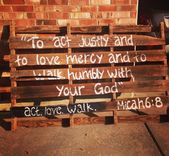 "To act justly and
to love mercy and to
walk humbly with
your God"
act. love. walk.
Micah 6:8